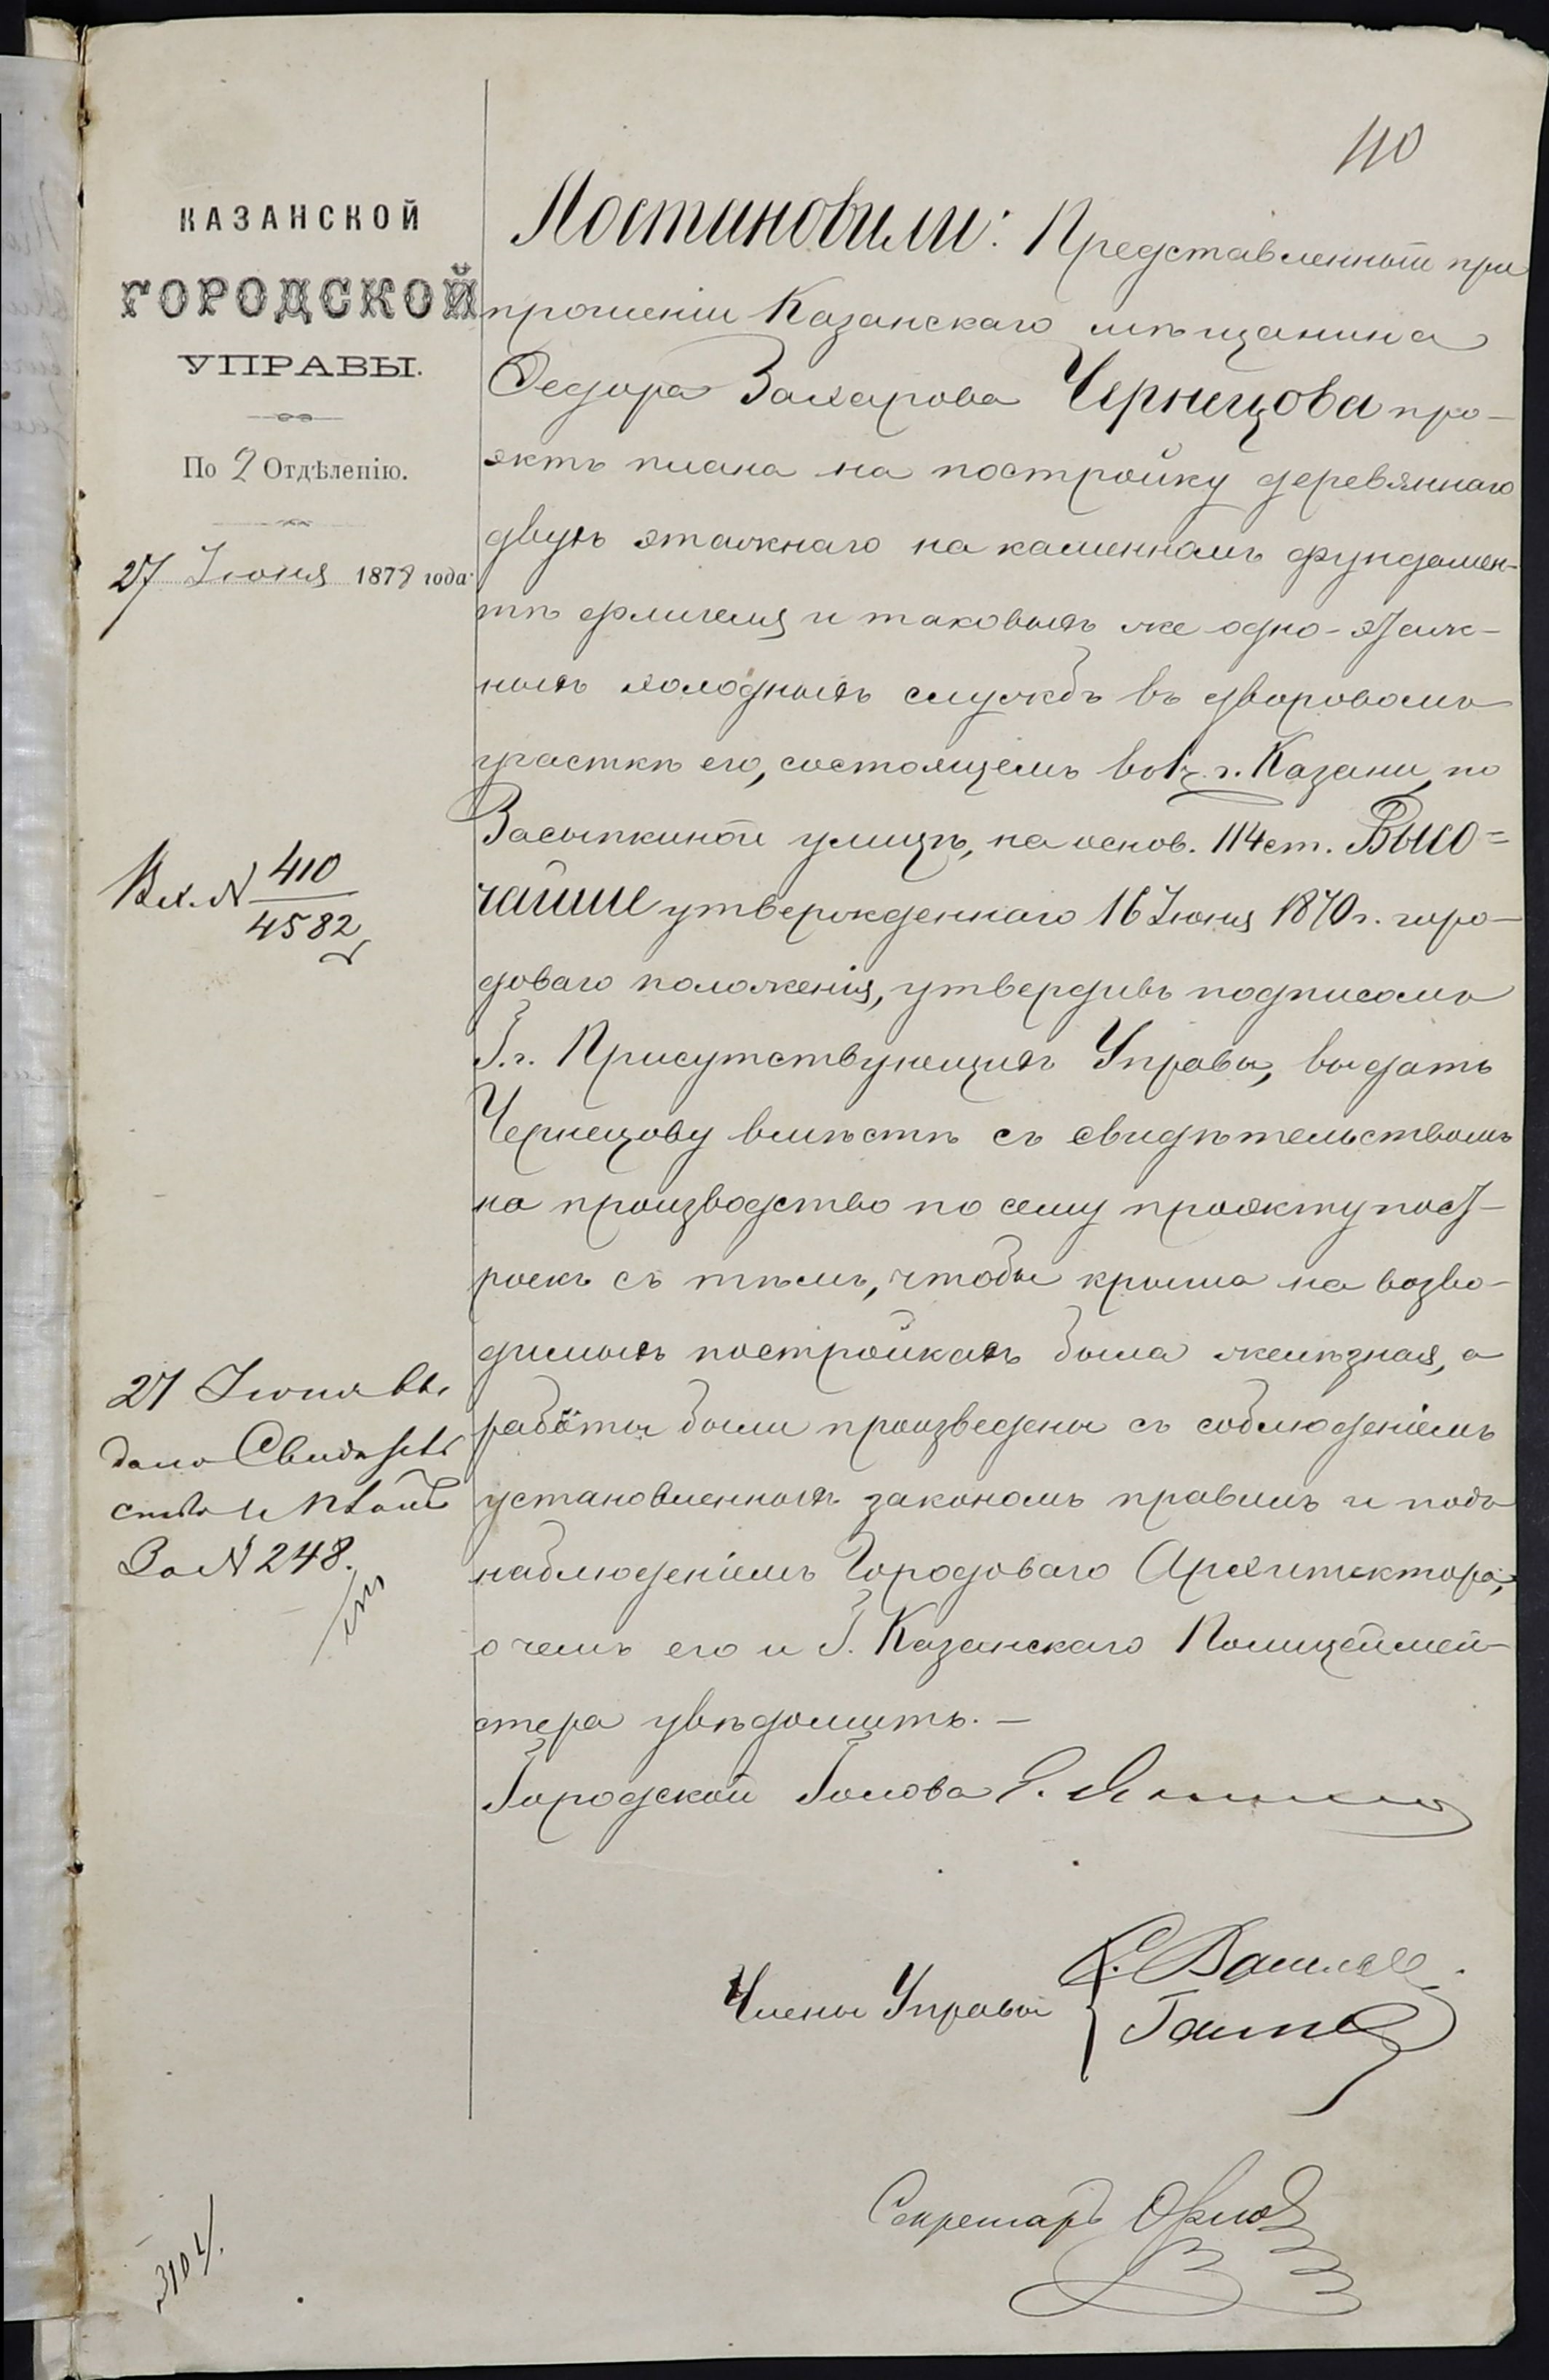 110
КАЗАНСКОЙ
ГОРОДСКОЙ
УПРАВЫ.
По 2 Отдѣленію.
27 Іюня 1878 года.
Вх. № 410
4582
27 Іюня вы
дано Свидѣтель
ство и планъ
За № 248.
Постановили: Представленный при
прошеніи Казанскаго мѣщанина
Федора Захарова Чернецова про-
эктъ плана на постройку деревяннаго
двухъ этажнаго на каменномъ фундамен-
тѣ флигеля и таковыхъ же одно-этаж-
ныхъ холодныхъ службъ въ дворовомъ
участкѣ его, состоящемъ во 2 ч. г. Казани, по
Засыпкиной улицѣ, на основ. 114 ст. Высо=
чайше утвержденнаго 16 Іюня 1870 г. горо-
доваго положенія, утвердивъ подписомъ
Г.г. Присутствующихъ Управы, выдать
Чернецову вмѣстѣ съ свидѣтельствомъ
на производство по сему проэкту пост-
роекъ съ тѣмъ, чтобы крыша на возво-
димыхъ постройкахъ была желѣзная, а
работы были произведены съ соблюденіемъ
установленныхъ закономъ правилъ и подъ
наблюденіемъ Городоваго Архитектора,
о чемъ его и Г. Казанскаго Полицеймей-
стера увѣдомить. —
Городской Голова Э. Янишевскій
Члены Управы
Секретарь Орлов